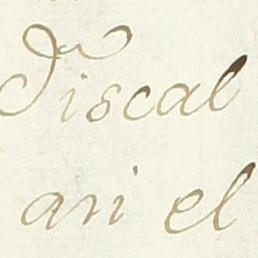 Fiscal
ari el